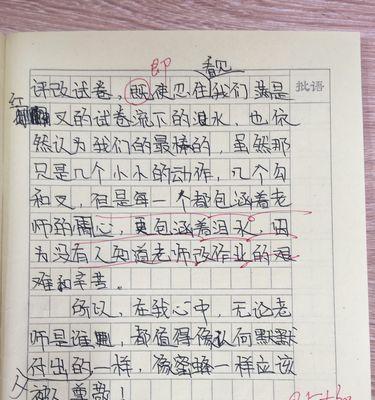 即 看见
评改试卷，既使见在我们满是 批语
红叉的试卷流下的泪水，也依
然认为我们的最棒的，虽然那
只是几个小小的动作，几个勾
和叉，但是每一个都包涵着老
师的用心，更包涵着泪水，因
为没有人知道老师改作业的艰
难和辛苦。
所以，在我心中，无论老
师是谁，都值得像以何默默
付出的一样，像蜜蜂一样应该
被人尊敬！